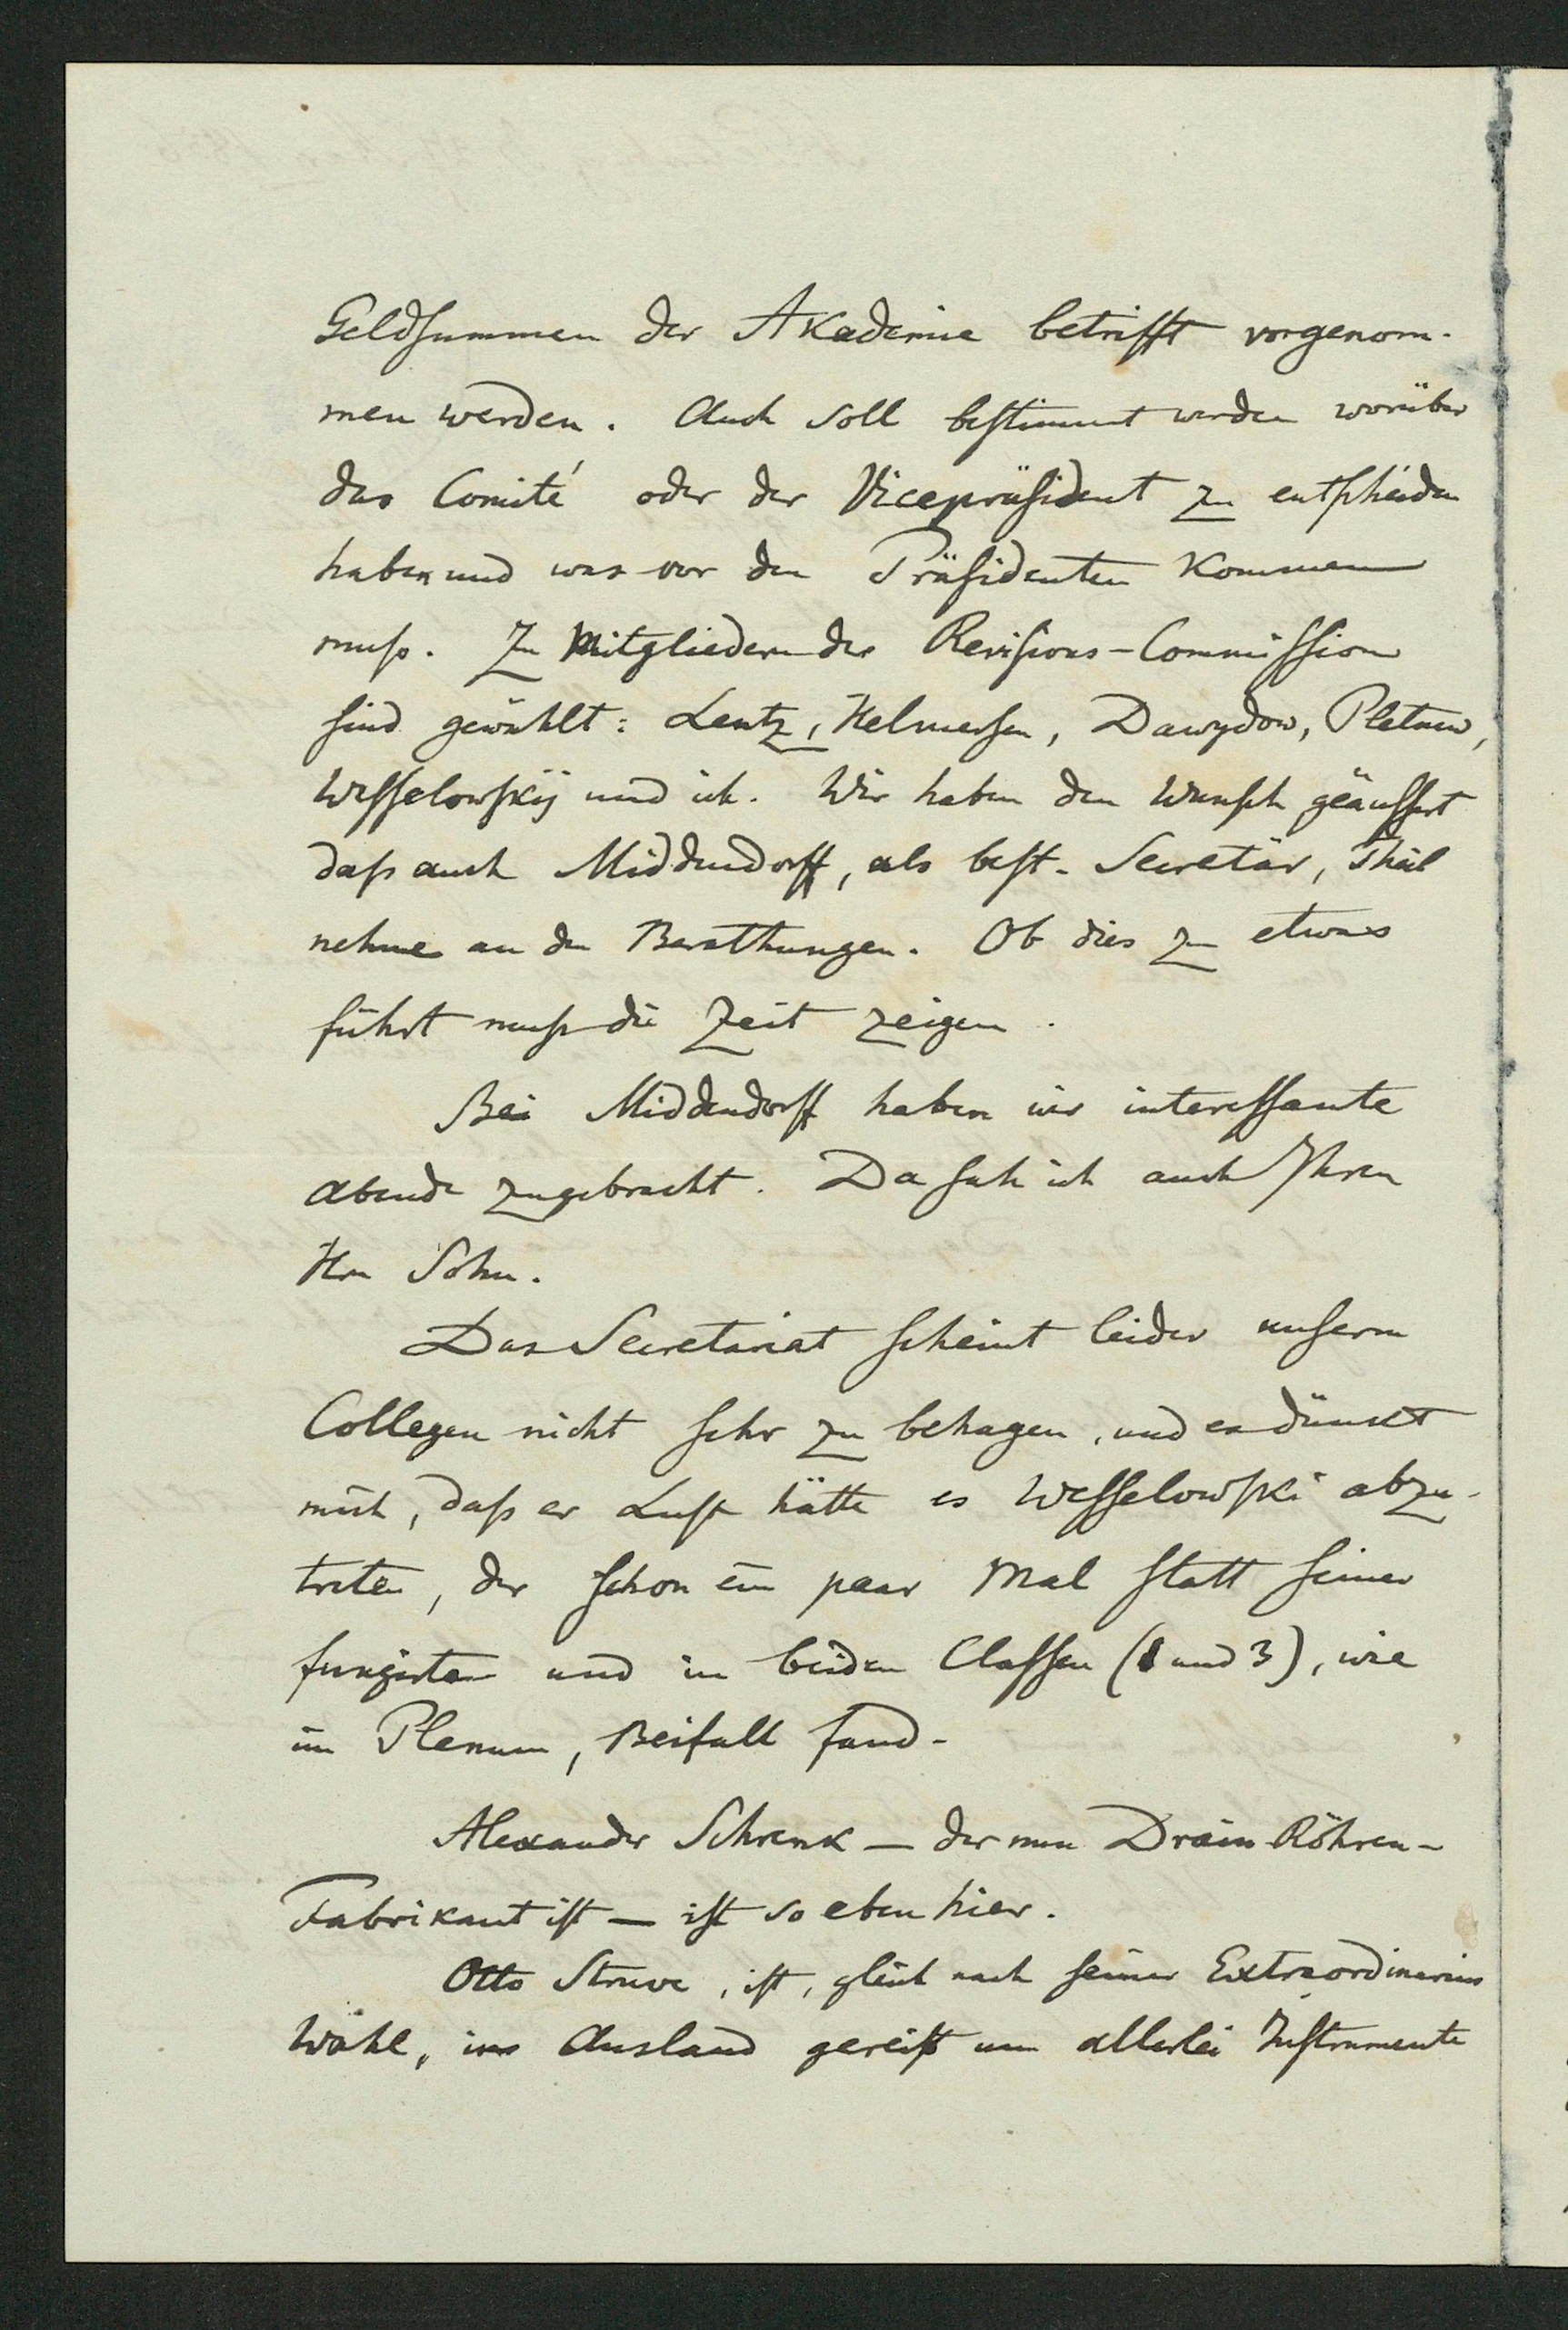 Geldsummen der Akademie betrifft vorgenom-
men werden. Auch soll bestimmt werden worüber
das Comité oder der Vicepräsident zu entscheiden
haben und was vor den Präsidenten kommen
muß. Zu Mitgliedern der Revisions-Commission
sind gewählt: Lentz, Helmersen, Dawydow, Pletnew,
Wesselowskij und ich. Wir haben den Wunsch geäussert
daß auch Middendorff, als best. Secretär, Theil
nehme an den Berathungen. Ob dies zu etwas
führt muß die Zeit zeigen.
Bei Middendorff haben wir interessante
Abende zugebracht. Da sah ich auch Ihren
Hrn Sohn.
Das Secretariat scheint leider unserm
Collegen nicht sehr zu behagen, und es dünkt
mich, daß er Lust hätte es Wesselowski abzu-
treten, der schon ein paar Mal statt seiner
fungirte und in beiden Classen (1 und 3), wie
im Plenum, Beifall fand.
Alexander Schrenk — der nun Drain-Röhren-
Fabrikant ist — ist so eben hier.
Otto Struve, ist, gleich nach seiner Extraordinarius
Wahl, ins Ausland gereist um allerlei Instrumente